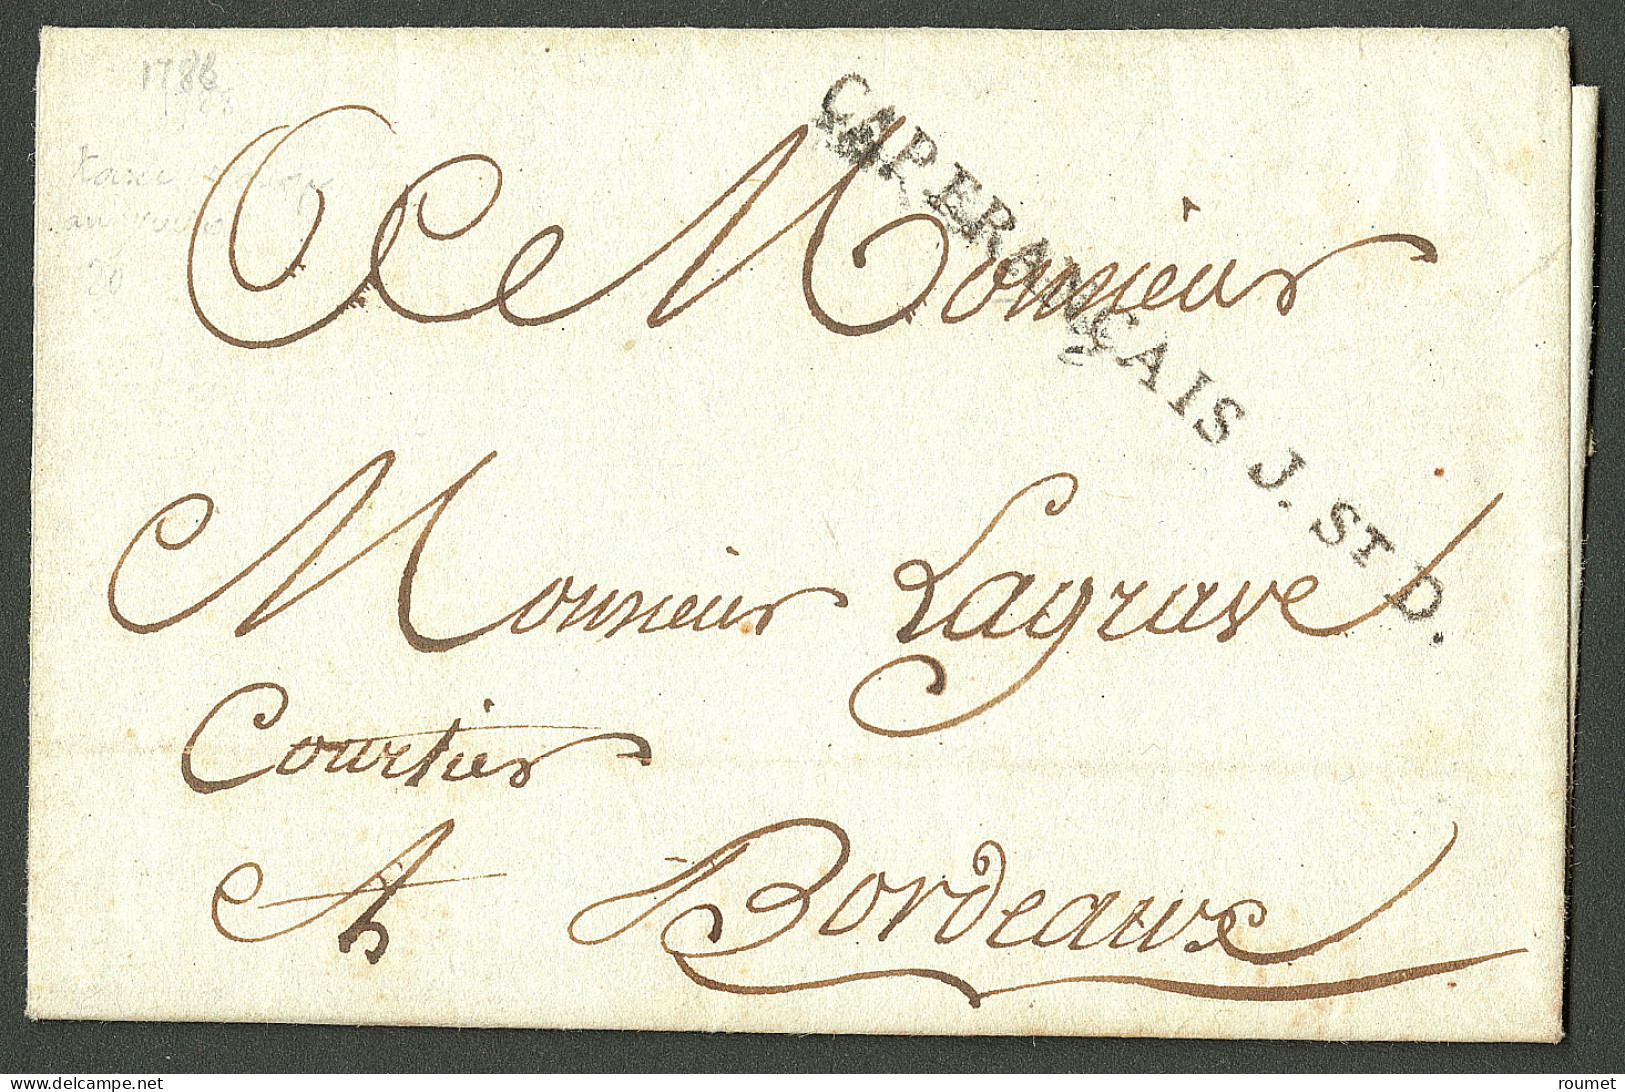 1788
CAP.FRANÇAIS J. ST D.
A Monsieur
20
Monsieur Lagrave
Courtier
A Bordeaux
delcampe.net
roumet